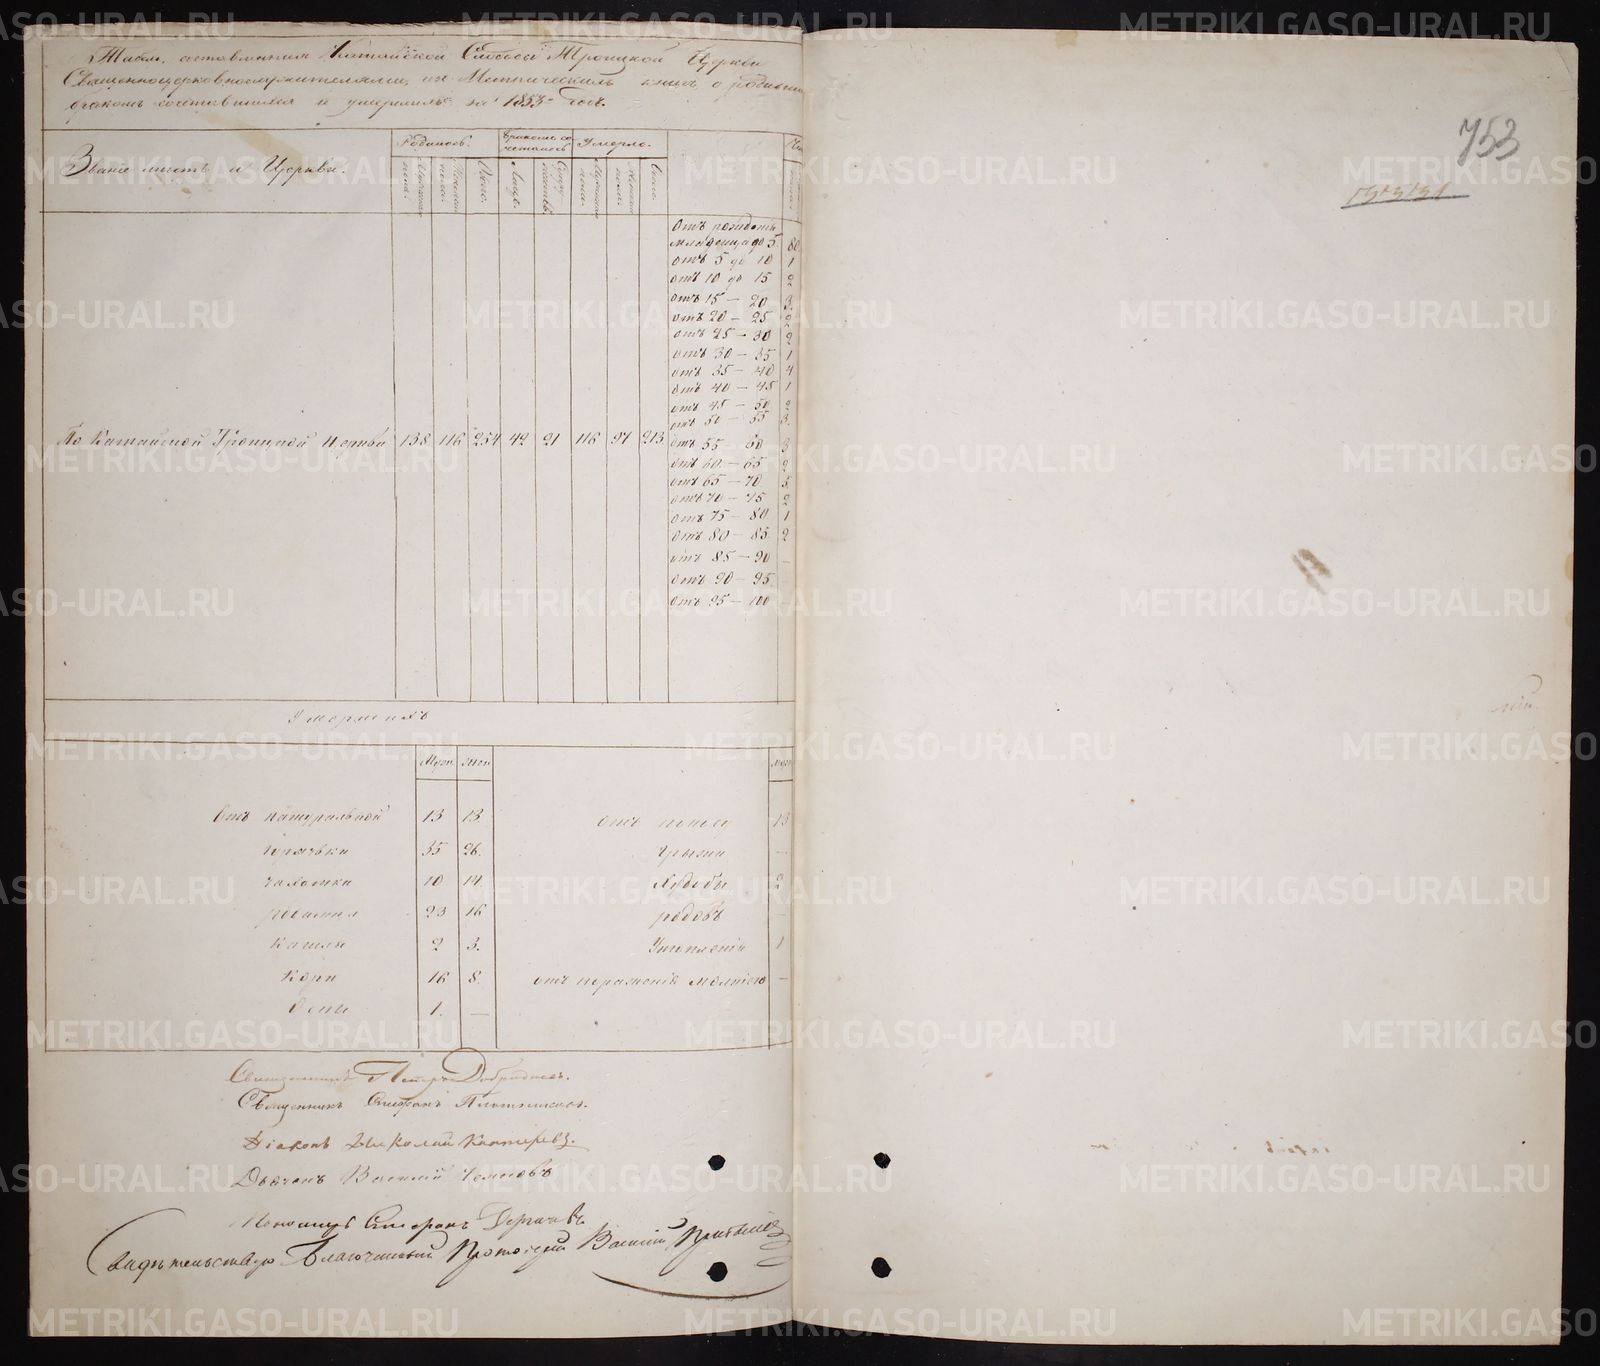 Табель, составленная Катайской Слободы Троицкой Церкви
Священноцерковнослужителями, из Метрических книгъ о родившихся
бракомъ сочетавшихся и умершихъ за 1853й годъ.
Званіе мѣстъ и Церкви.
Родилось.
Бракомъ сочеталось
Умерло.
Мужеска пола.
Женска пола.
Всего.
Лицъ.
Мужеска пола.
Женска пола.
Всего.
отъ рожденія
младенца до 5. 80
отъ 5 до 10 1
отъ 10 до 15 2
отъ 15 — 20 3.
отъ 20 — 25 2
отъ 25 — 30 2
отъ 30 — 35 1
отъ 35 — 40 4
отъ 40 — 45 1
отъ 45 — 50 2
отъ 50 — 55 3.
По Катайской Троицкой Церкви 138 116 254 42 21 116 97 213 отъ 55 — 60 3
отъ 60. — 65 2
отъ 65 — 70 5
отъ 70 — 75 2
отъ 75 — 80. 1
отъ 80 — 85 2
отъ 85 — 90 —
отъ 90 — 95.
отъ 95 — 100
Умершихъ
Муж. Жен. Муж
Отъ натуральной 13 13. отъ поносу 13
горячки 35 26. грыжи —
чахотки 10 14. худобы 2
родимца 23 16 родовъ
кашля 2 3. Утопленія 1
Кори 16 8. отъ пораженія молніею —
Оспы 1. —
Священникъ Петръ Добродѣевъ.
Священникъ Стефанъ
Діаконъ Николай
Дьячокъ Василій
Пономарь Стефанъ Дергачевъ
Свидѣтельствую Благочинный Протоіерей Василій
753
METRIKI.GASO-URAL.RU